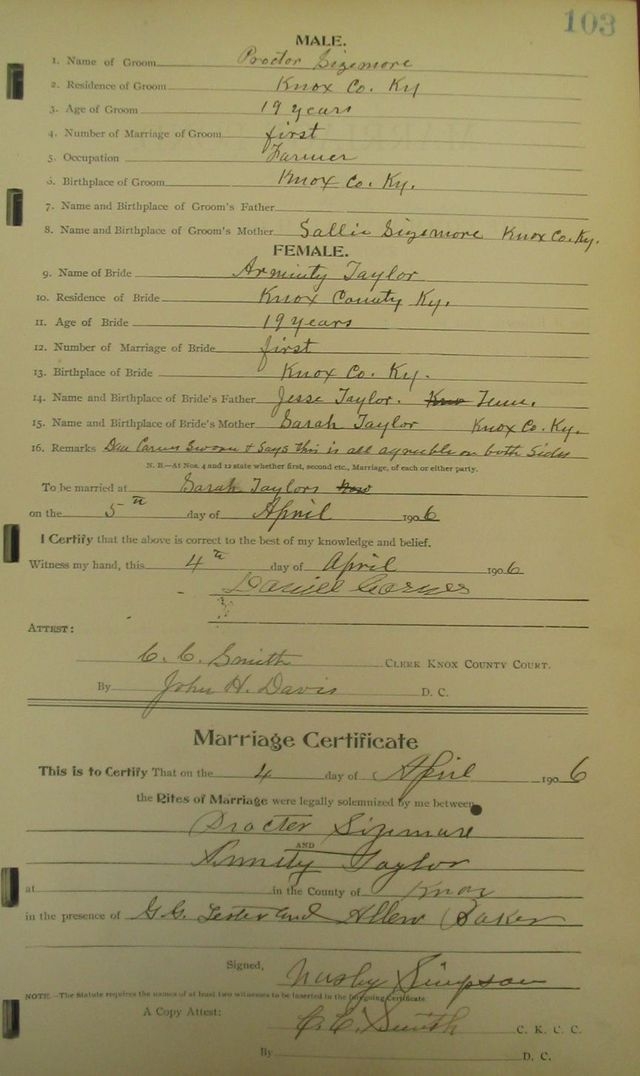 103
MALE.
1. Name of Groom Proctor Sizemore
2. Residence of Groom Knox Co. Ky
3. Age of Groom 19 years
4. Number of Marriage of Groom first
5. Occupation Farmer
6. Birthplace of Groom Knox Co. Ky.
7. Name and Birthplace of Groom's Father
8. Name and Birthplace of Groom's Mother Sallie Sizemore Knox Co. Ky.
FEMALE.
9. Name of Bride Arminty Taylor
10. Residence of Bride Knox County Ky.
11. Age of Bride 19 years
12. Number of Marriage of Bride first
13. Birthplace of Bride Knox Co. Ky.
14. Name and Birthplace of Bride's Father Jesse Taylor. Knox Tenn.
15. Name and Birthplace of Bride's Mother Sarah Taylor Knox Co. Ky.
16. Remarks Dan Carnes Sworn & Says this is all agreeable on both Sides
N. B.—At Nos. 4 and 12 state whether first, second etc., Marriage, of each or either party.
To be married at Sarah Taylors
on the 5th day of April 1906
I Certify that the above is correct to the best of my knowledge and belief.
Witness my hand, this 4th day of April 1906
Daniel Carnes
ATTEST:
C. C. Smith CLERK KNOX COUNTY COURT.
By John H. Davis D. C.
Marriage Certificate
This is to Certify That on the 4 day of April 1906
the Rites of Marriage were legally solemnized by me between
Procter Sizemore
AND
Taylor
at in the County of Knox
in the presence of G. G. Lester and Allen Baker
Signed, Simpson
NOTE.—The Statute requires the names of at least two witnesses to be inserted in the foregoing Certificate
A Copy Attest: C. C. Smith C. K. C. C.
By D. C.